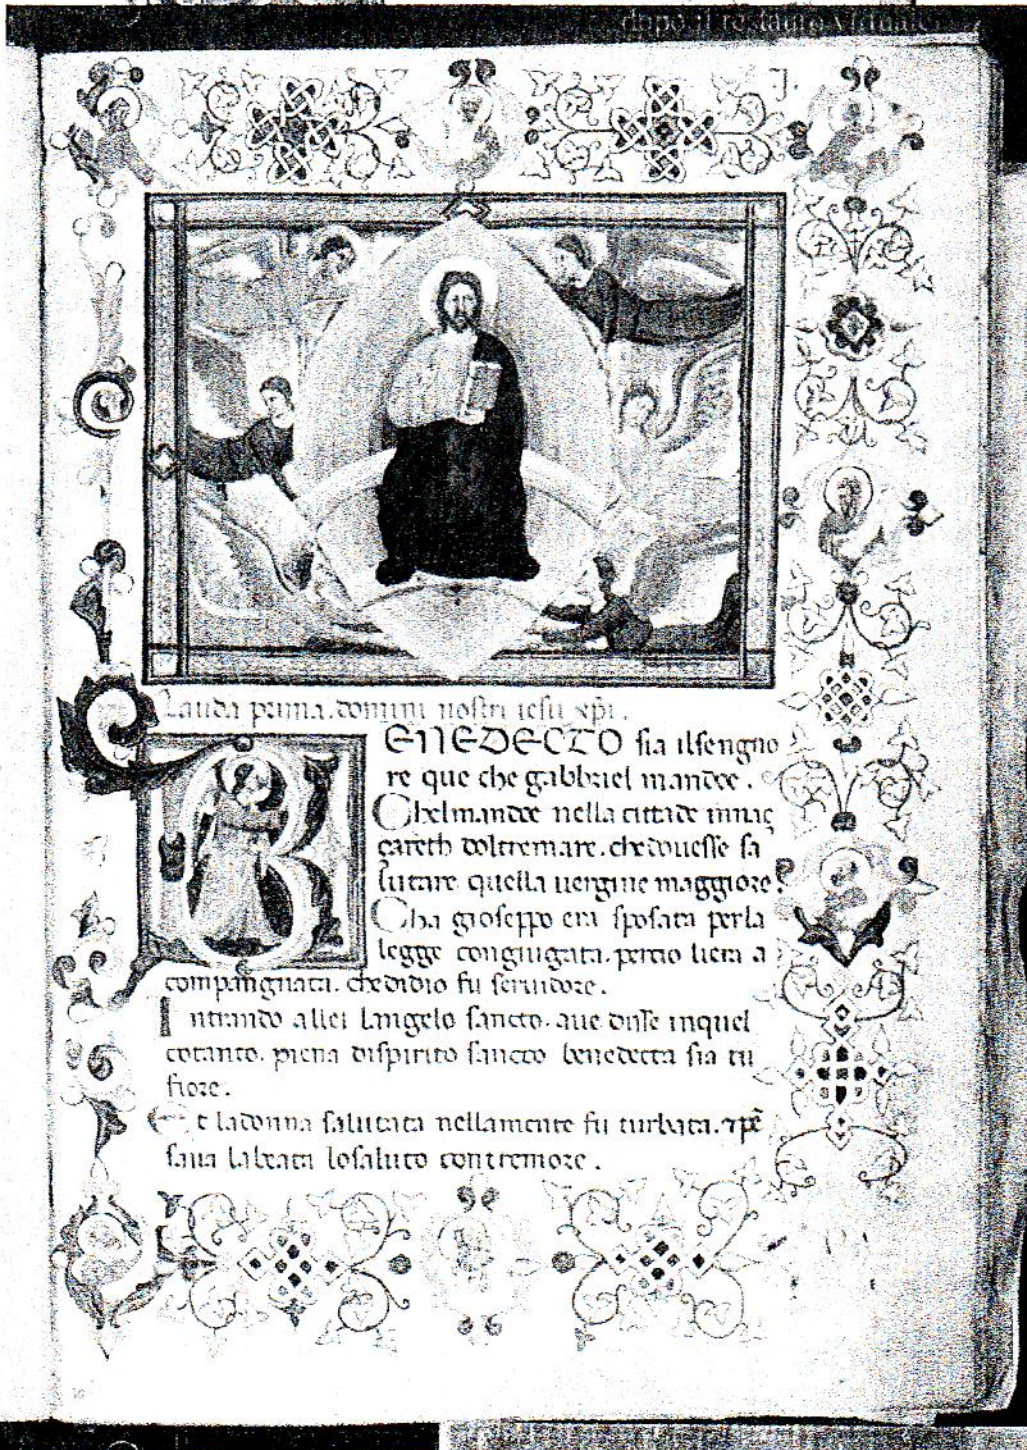 dopo il restauro virtuale
Lauda prima. domini nostri iesu xpi.
BENEDECTO sia ilsengno
re que che gabbriel mandoe.
Chelmandoe nella cittade innaç
çareth doltremare. chedouesse sa
lutare quella uergine maggiore.
Cha gioseppo era sposata perla
legge congiugata. percio liera a
compangnata. chedidio fu seruidore.
Intrando allei langelo sancto. aue disse inquel
cotanto. piena dispirito sancto benedecta sia tu
fiore.
Et ladonna salutata nellamente fu turbata. ⁊ pē
saua labeata losaluto contremore.